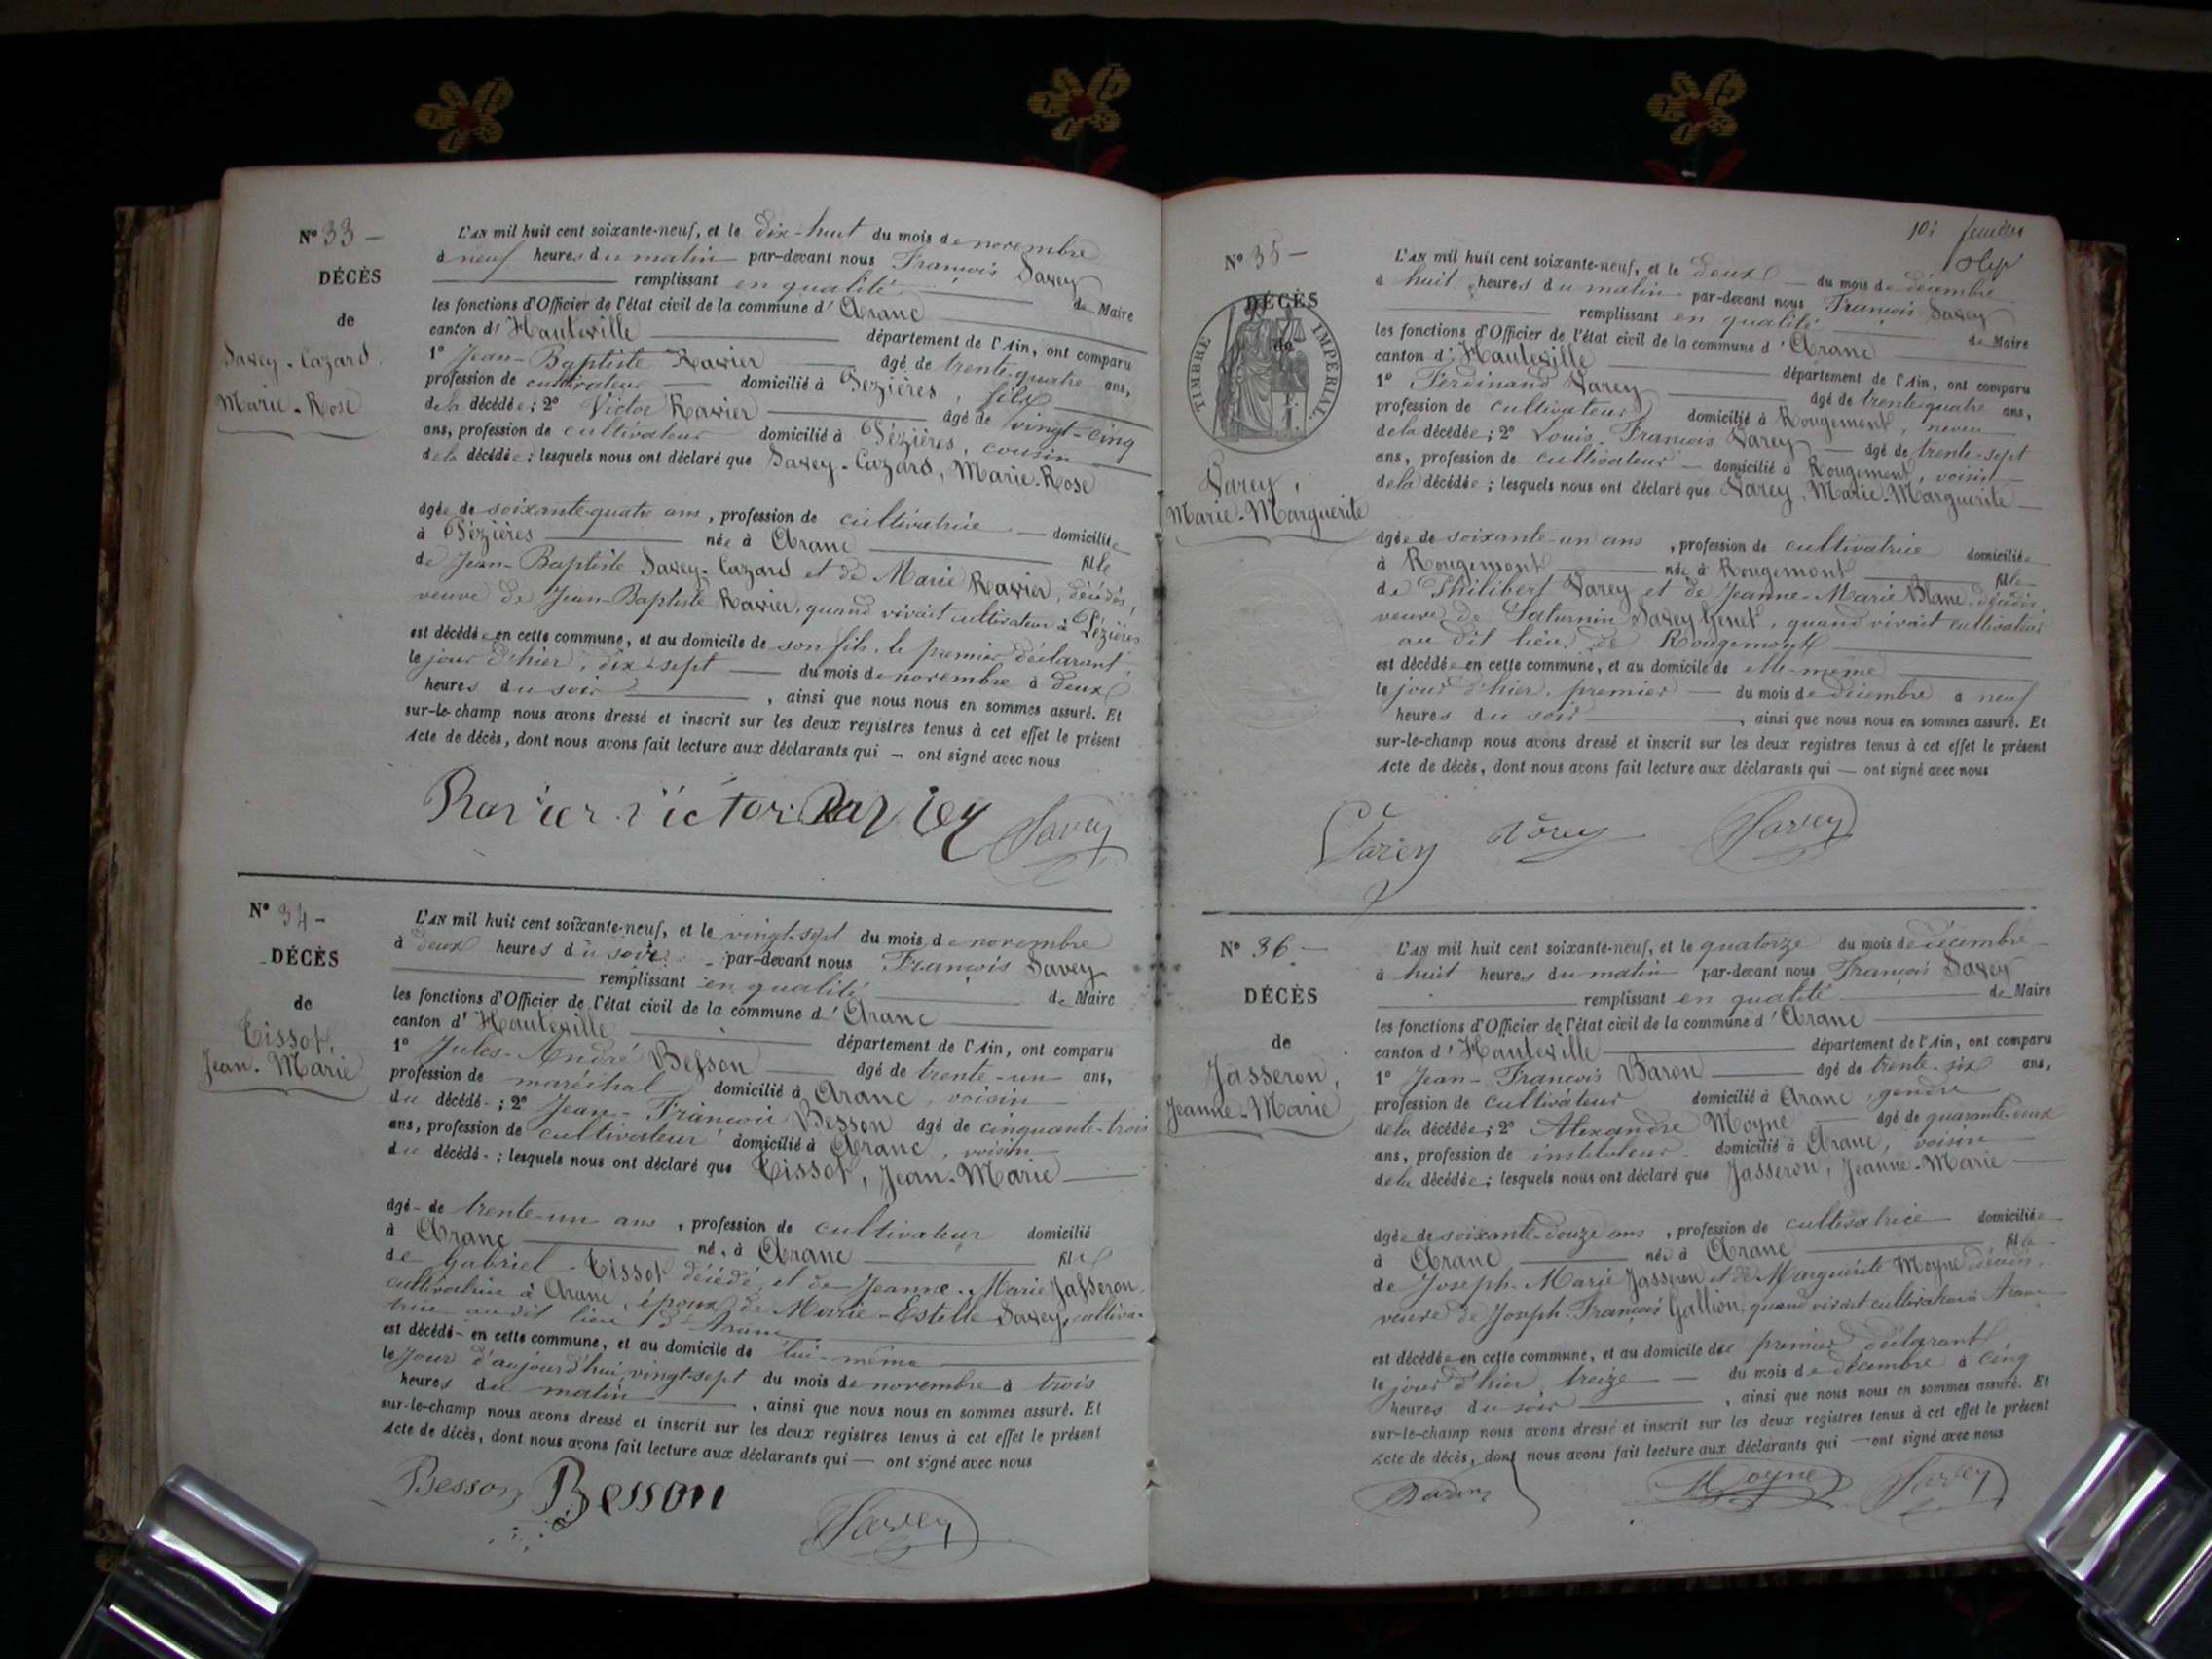 N° 33 —
DÉCÈS
de
Savey-Cazard
Marie-Rose
L'AN mil huit cent soixante-neuf, et le dix-huit du mois de novembre
à neuf heures du matin par-devant nous François Savey
remplissant en qualité de Maire
les fonctions d'Officier de l'état civil de la commune d'Aranc
canton d'Hauteville département de l'Ain, ont comparu
1° Jean-Baptiste Ravier âgé de trente-quatre ans,
profession de cultivateur domicilié à Pézières, fils
de la décédée; 2° Victor Ravier âgé de vingt-cinq
ans, profession de cultivateur domicilié à Pézières, cousin
de la décédée; lesquels nous ont déclaré que Savey-Cazard, Marie-Rose
âgée de soixante-quatre ans, profession de cultivatrice domiciliée
à Pézières née à Aranc fille
de Jean-Baptiste Savey-Cazard et de Marie Ravier, décédés,
veuve de Jean-Baptiste Ravier, quand vivait cultivateur à Pézières
est décédée en cette commune, et au domicile de son fils, le premier déclarant,
le jour d'hier, dix-sept du mois de novembre à deux
heures du soir, ainsi que nous nous en sommes assuré. Et
sur-le-champ nous avons dressé et inscrit sur les deux registres tenus à cet effet le présent
Acte de décès, dont nous avons fait lecture aux déclarants qui — ont signé avec nous
Ravier Victor Ravier Savey
N° 34 —
DÉCÈS
de
Tissot,
Jean-Marie
L'AN mil huit cent soixante-neuf, et le vingt-sept du mois de novembre
à deux heures du soir par-devant nous François Savey
remplissant en qualité de Maire
les fonctions d'Officier de l'état civil de la commune d'Aranc
canton d'Hauteville département de l'Ain, ont comparu
1° Jules-André Besson âgé de trente-un ans,
profession de maréchal domicilié à Aranc, voisin
du décédé; 2° Jean-François Besson âgé de cinquante-trois
ans, profession de cultivateur domicilié à Aranc, voisin
du décédé; lesquels nous ont déclaré que Tissot, Jean-Marie
âgé de trente-un ans, profession de cultivateur domicilié
à Aranc né à Aranc fils
de Gabriel Tissot décédé, et de Jeanne-Marie Jasseron,
cultivatrice à Aranc, époux de Marie-Estelle Savey, cultiva-
trice au dit lieu d'Aranc
est décédé en cette commune, et au domicile de lui-même
le jour d'aujourd'hui, vingt-sept du mois de novembre à trois
heures du matin, ainsi que nous nous en sommes assuré. Et
sur-le-champ nous avons dressé et inscrit sur les deux registres tenus à cet effet le présent
Acte de décès, dont nous avons fait lecture aux déclarants qui — ont signé avec nous
Besson Besson Savey
N° 35 —
DÉCÈS
de
TIMBRE IMPÉRIAL
Varey,
Marie-Marguerite
L'AN mil huit cent soixante-neuf, et le deux du mois de décembre
à huit heures du matin par-devant nous François Savey
remplissant en qualité de Maire
les fonctions d'Officier de l'état civil de la commune d'Aranc
canton d'Hauteville département de l'Ain, ont comparu
1° Ferdinand Varey âgé de trente-quatre ans,
profession de cultivateur domicilié à Rougemont, neveu
de la décédée; 2° Louis-François Varey âgé de trente-sept
ans, profession de cultivateur domicilié à Rougemont, voisin
de la décédée; lesquels nous ont déclaré que Varey, Marie-Marguerite
âgée de soixante-un ans, profession de cultivatrice domiciliée
à Rougemont née à Rougemont fille
de Philibert Varey et de Jeanne-Marie Blanc décédés
veuve de Saturnin Savey Genet, quand vivait cultivateur
au dit lieu de Rougemont
est décédée en cette commune, et au domicile de elle-même
le jour d'hier, premier du mois de décembre à neuf
heures du soir, ainsi que nous nous en sommes assuré. Et
sur-le-champ nous avons dressé et inscrit sur les deux registres tenus à cet effet le présent
Acte de décès, dont nous avons fait lecture aux déclarants qui — ont signé avec nous
Varey Varey Savey
N° 36 —
DÉCÈS
de
Jasseron,
Jeanne-Marie
L'AN mil huit cent soixante-neuf, et le quatorze du mois de décembre
à huit heures du matin par-devant nous François Savey
remplissant en qualité de Maire
les fonctions d'Officier de l'état civil de la commune d'Aranc
canton d'Hauteville département de l'Ain, ont comparu
1° Jean-François Baron âgé de trente-six ans,
profession de cultivateur domicilié à Aranc, gendre
de la décédée; 2° Alexandre Moyne âgé de quarante-deux
ans, profession de instituteur domicilié à Aranc, voisin
de la décédée; lesquels nous ont déclaré que Jasseron, Jeanne-Marie
âgée de soixante-douze ans, profession de cultivatrice domiciliée
à Aranc née à Aranc fille
de Joseph-Marie Jasseron et de Marguerite Moyne décédés,
veuve de Joseph-François Gallion, quand vivait cultivateur à Aranc
est décédée en cette commune, et au domicile du premier déclarant,
le jour d'hier, treize du mois de décembre à cinq
heures du soir, ainsi que nous nous en sommes assuré. Et
sur-le-champ nous avons dressé et inscrit sur les deux registres tenus à cet effet le présent
Acte de décès, dont nous avons fait lecture aux déclarants qui — ont signé avec nous
Baron Moyne Savey